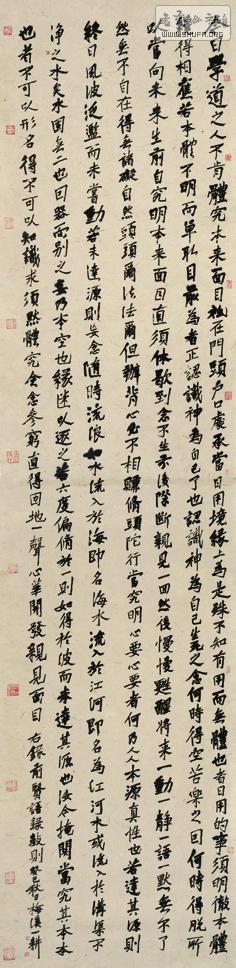 今日學道之人不肯體究本来面目祗在門頭戶口虔承當日用境緣上為是殊不知有用而無體也者日用的事須明徹本體
纔得相應若本體不明而單取目最為者正認識神為自己了也認識神為自己生死之念何時得空苦樂之因何時得脫所
以當向未来生前自究明本来面目直須休歇到念不生前後際斷親見一回然後慢慢甦醒將来一動一靜一語一默無不了
然無不自在得無諸礙自然頭頭爾法法爾但辦肯心必不相賺脩頭陀行當究明心要心要者何乃人人本源真性也若達其源則
終日風波泛灔而未嘗動若未達源則妄念隨時流浪如水流入於海即名海水流入於江河即名為江河水或流入於溝渠不
淨之水矣水固無二也回器而别之立乃本空也緣迷以返之若六度偏脩於一則如得於波而未達其源也汝今掩関當究其本
也者不可以形名得不可以知識求須默體究念念參窮直得回地一聲心華開發親見面目 右錄前賢語錄數則 癸巳秋日梅溪耕
WWW.SHUFA.ORG